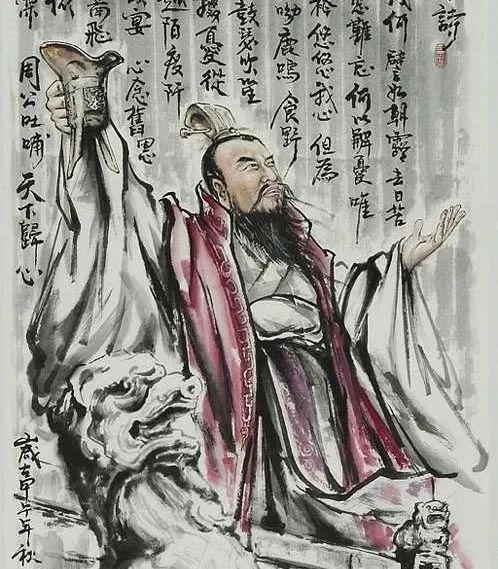 詩
幾何 譬如朝露 去日苦
思難忘 何以解憂 唯
衿 悠悠我心 但為
呦鹿鳴 食野
鼓瑟吹笙
掇 憂從
越陌度阡
宴 心念舊恩
南飛
周公吐哺 天下歸心
歲在甲午年秋